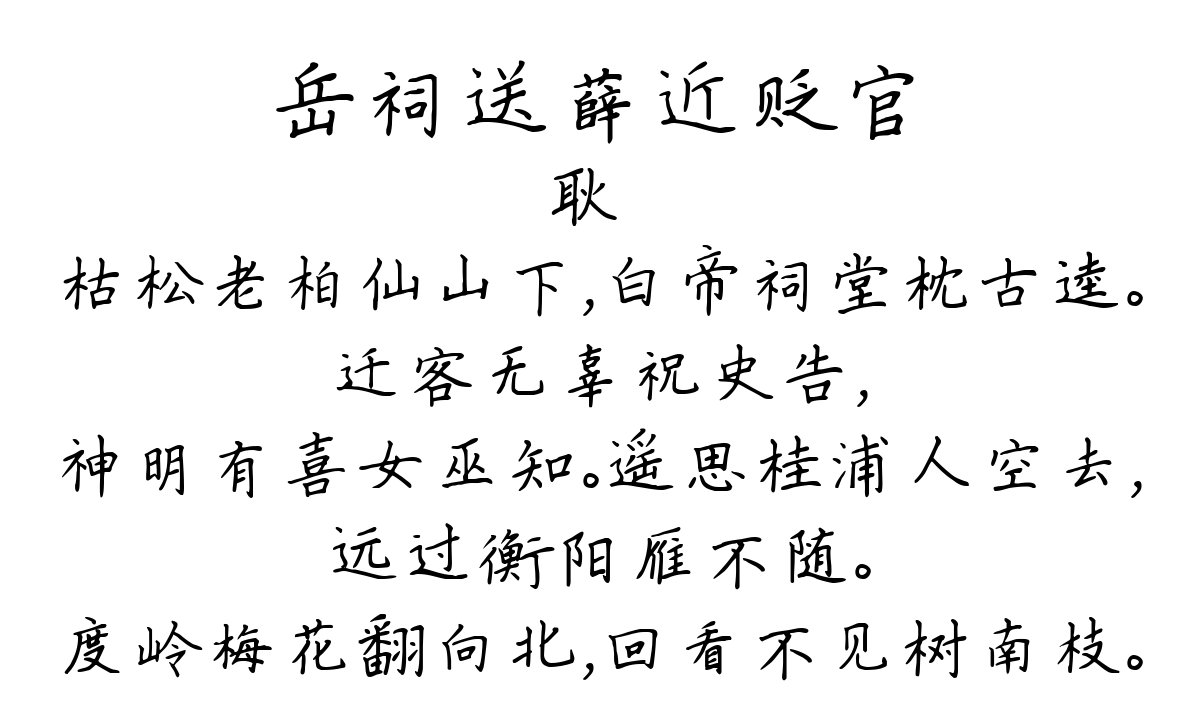 岳祠送薛近贬官
耿
枯松老柏仙山下,白帝祠堂枕古逵。
迁客无辜祝史告,
神明有喜女巫知。遥思桂浦人空去,
远过衡阳雁不随。
度岭梅花翻向北,回看不见树南枝。